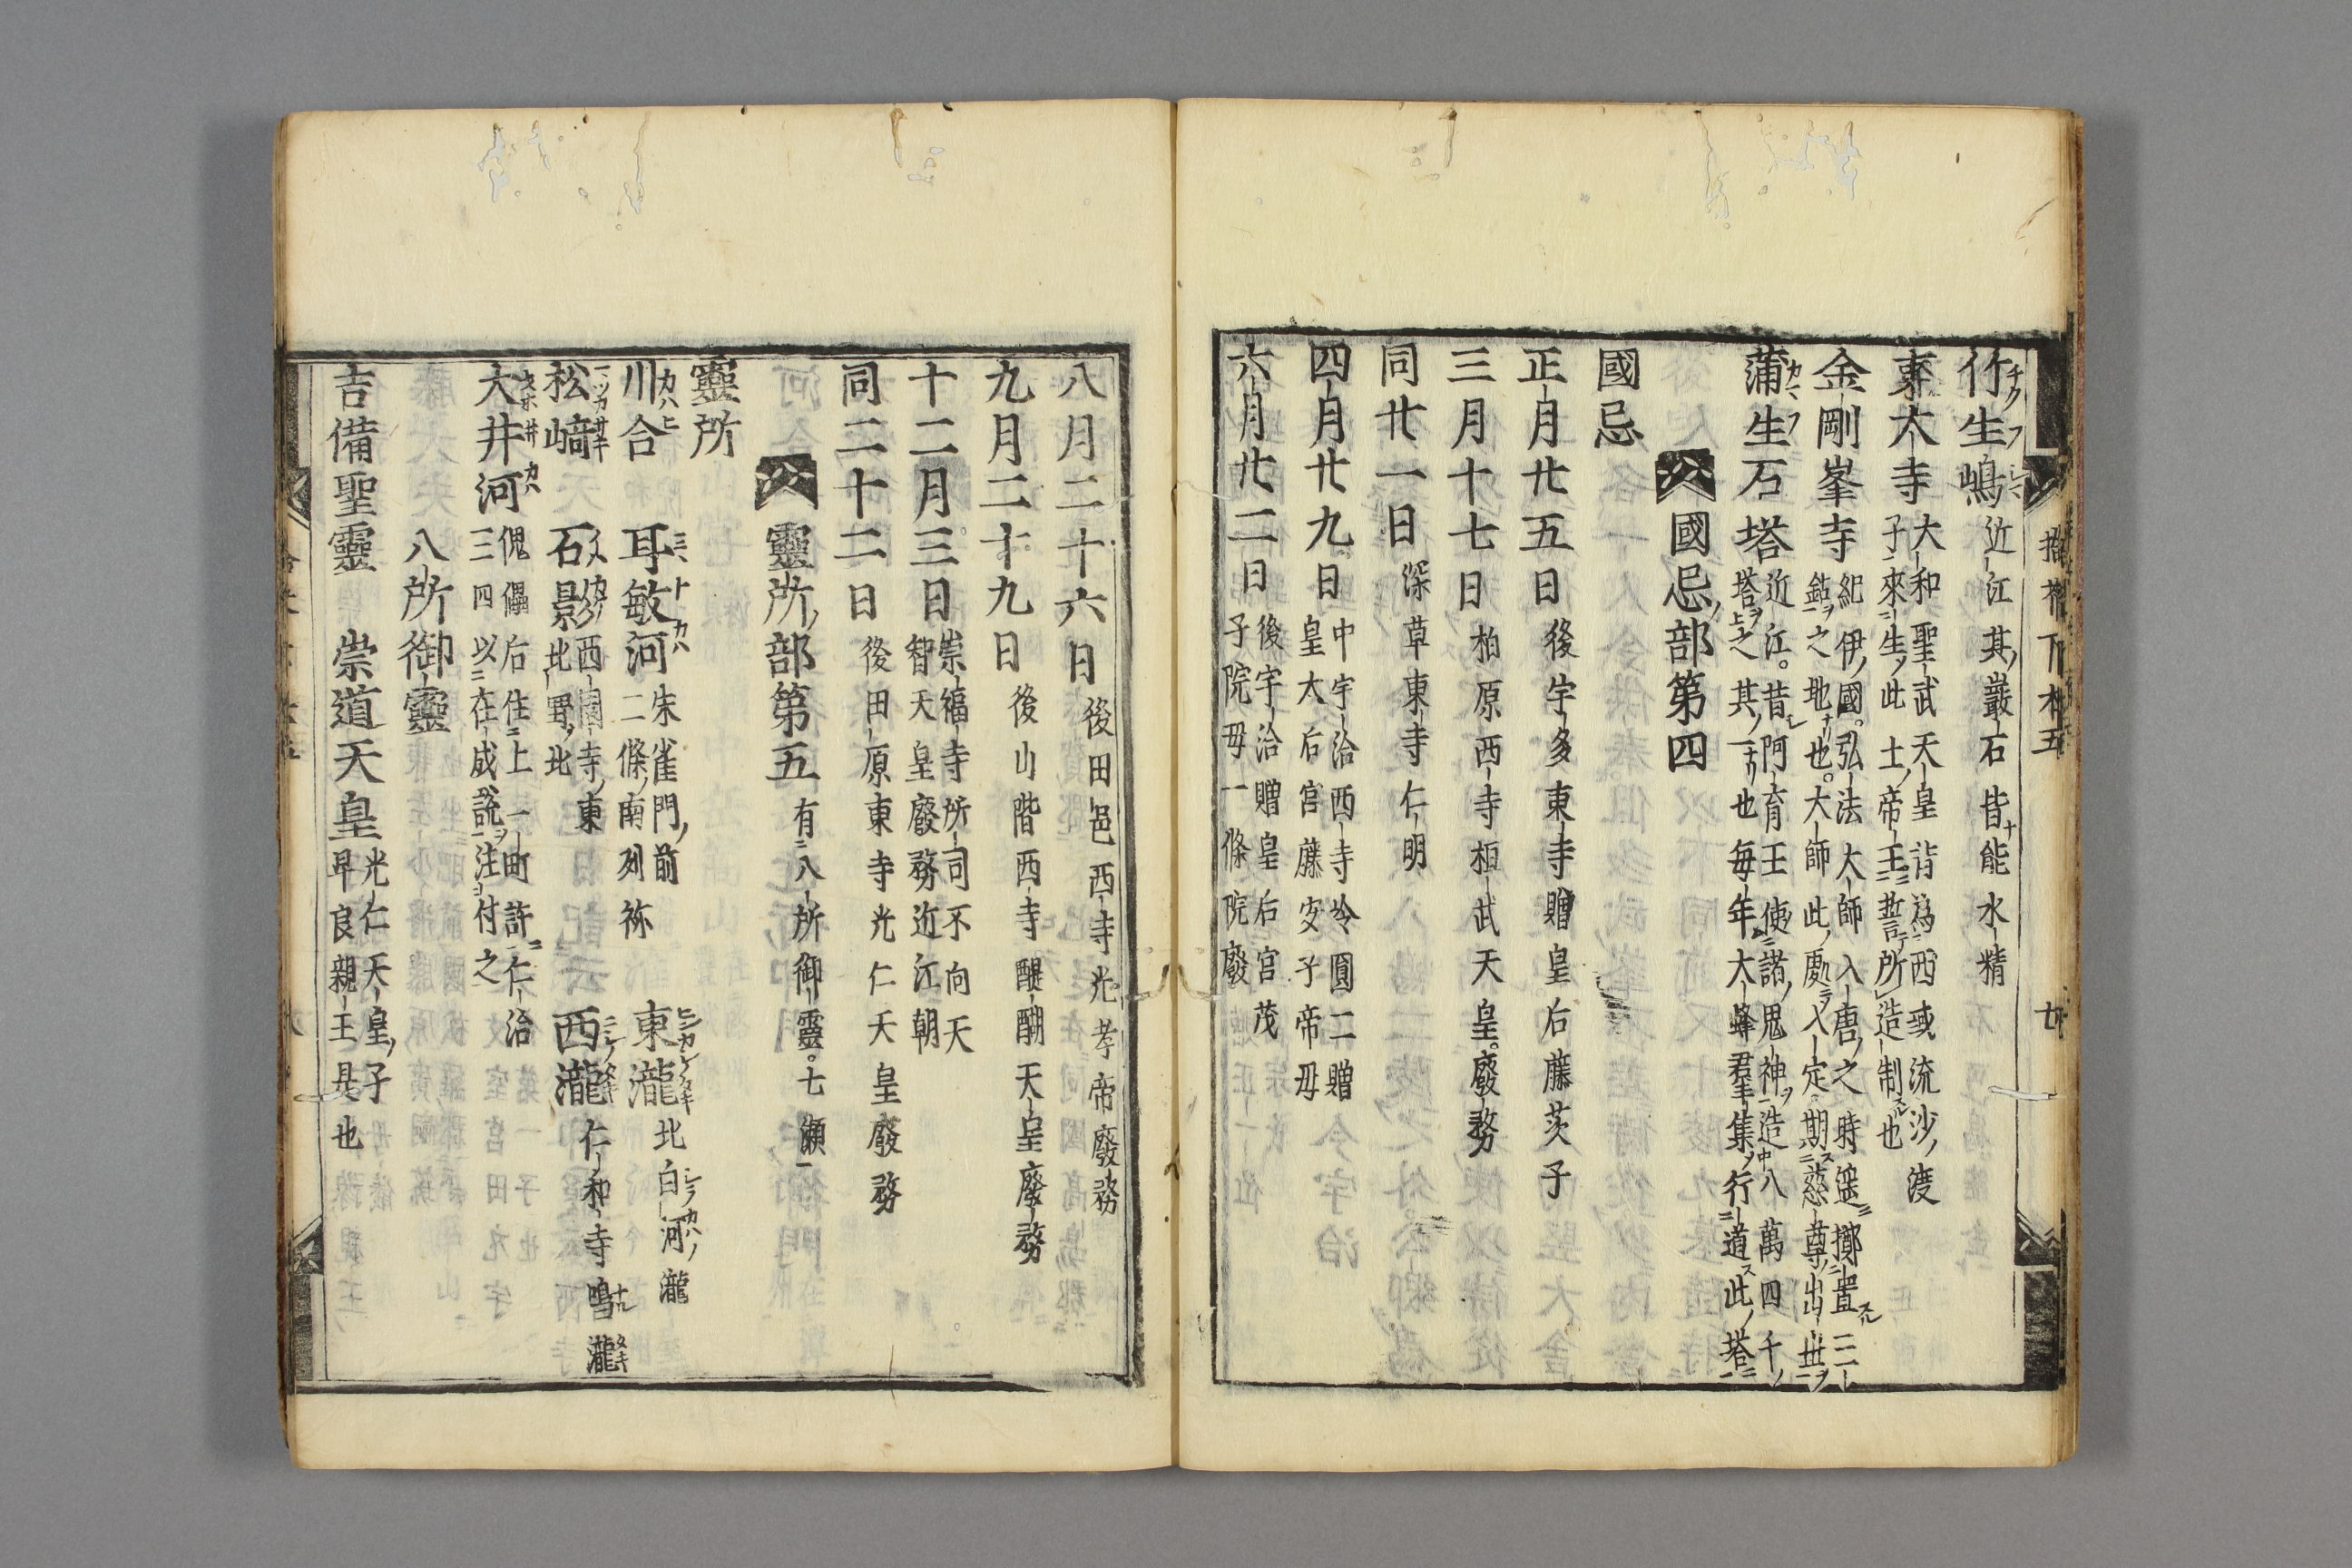 竹生嶋 近江其巖石皆能水精
東大寺 大和聖武天皇皆為西域流沙渡
子來生此土帝王誓所造制也
金剛峯寺 紀伊國弘法大師入唐之時遥擲置三
鈷之地也大師此處入定期慈尊出世
蒲生石塔 近江昔阿育王使諸鬼神造八萬四千
塔之其一也毎年大蜂群集行道此塔
國忌部第四
國忌
正月廿五日 後宇多東寺贈皇后藤茨子
三月十七日 柏原西寺桓武天皇廢務
同廿一日 深草東寺仁明
四月廿九日 中宇治西寺冷圓二贈
皇大后宮藤安子帝母
六月廿二日 後宇治贈皇后宮茂
子院母一條院廢
八月二十六日 後田邑西寺光孝帝廢務
九月二十九日 後山階西寺醍醐天皇廢務
十二月三日 崇福寺所司不向天
智天皇廢務近江朝
同二十二日 後田原東寺光仁天皇廢務
靈所部第五 有八所御靈七瀬
靈所
川合 耳敏河 朱雀門前
二條南列祢 東瀧 北白河瀧
松﨑 石影 西園寺東
北野北 西瀧 仁和寺鳴瀧
大井河 傀儡后住上一町許仁治
三四以在成説注付之
八所御靈
吉備聖靈 崇道天皇 光仁天皇子
早良親王是也